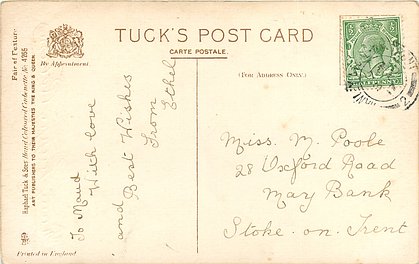 TUCK'S POST CARD
CARTE POSTALE.
(FOR ADDRESS ONLY.)
By Appointment
Raphael Tuck & Sons
ART PUBLISHERS TO THEIR MAJESTIES THE KING & QUEEN
Printed in England
To Maud
With love
and Best Wishes
From
Ethel
Miss. M. Poole
28 Oxford Road
May Bank
Stoke. on. Trent